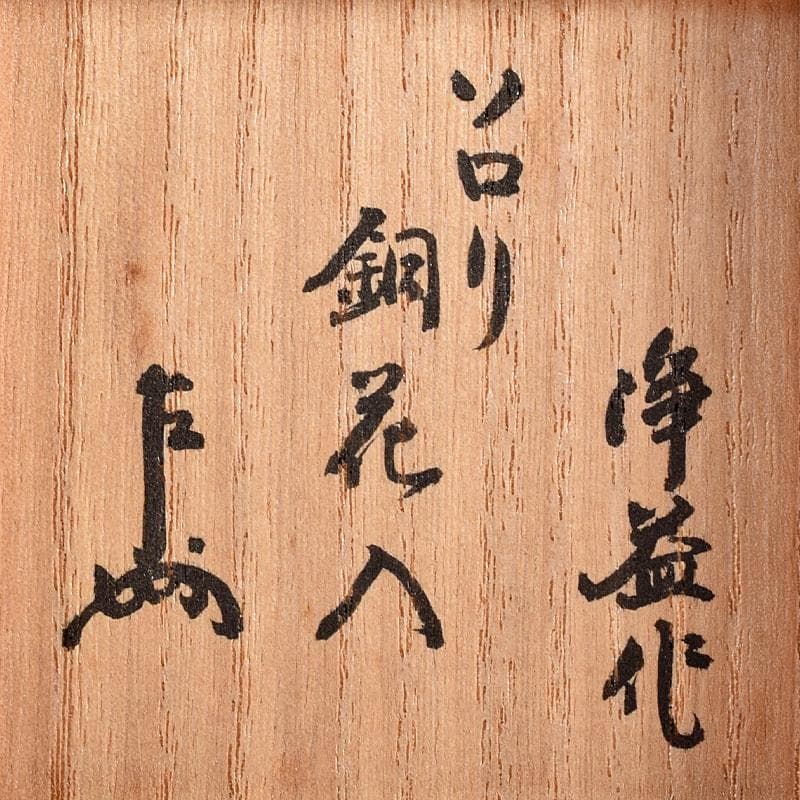 浄益作
ソロリ
銅花入